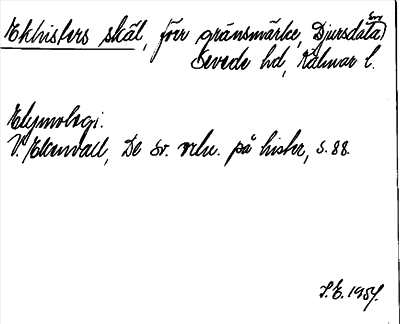 Ekhisters skäl, förr gränsmärke, Djursdala sn
Sevede hd, Kalmar l.
Etymologi.
V. Ekenvall, De sv. ortn. på hister, s. 88.
S.E. 1954.